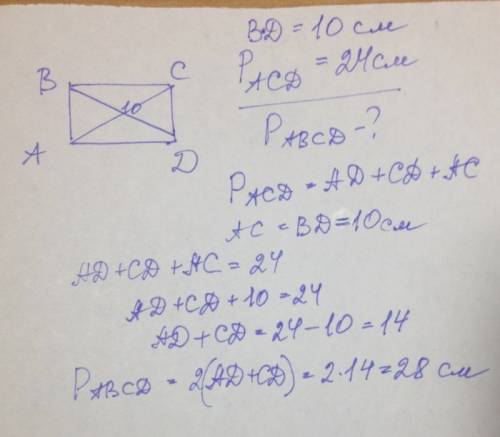 BD = 10 см
P ACD = 24 см
P ABCD - ?
B C
10
A D
P ACD = AD + CD + AC
AC = BD = 10 см
AD + CD + AC = 24
AD + CD + 10 = 24
AD + CD = 24 - 10 = 14
P ABCD = 2(AD + CD) = 2 · 14 = 28 см